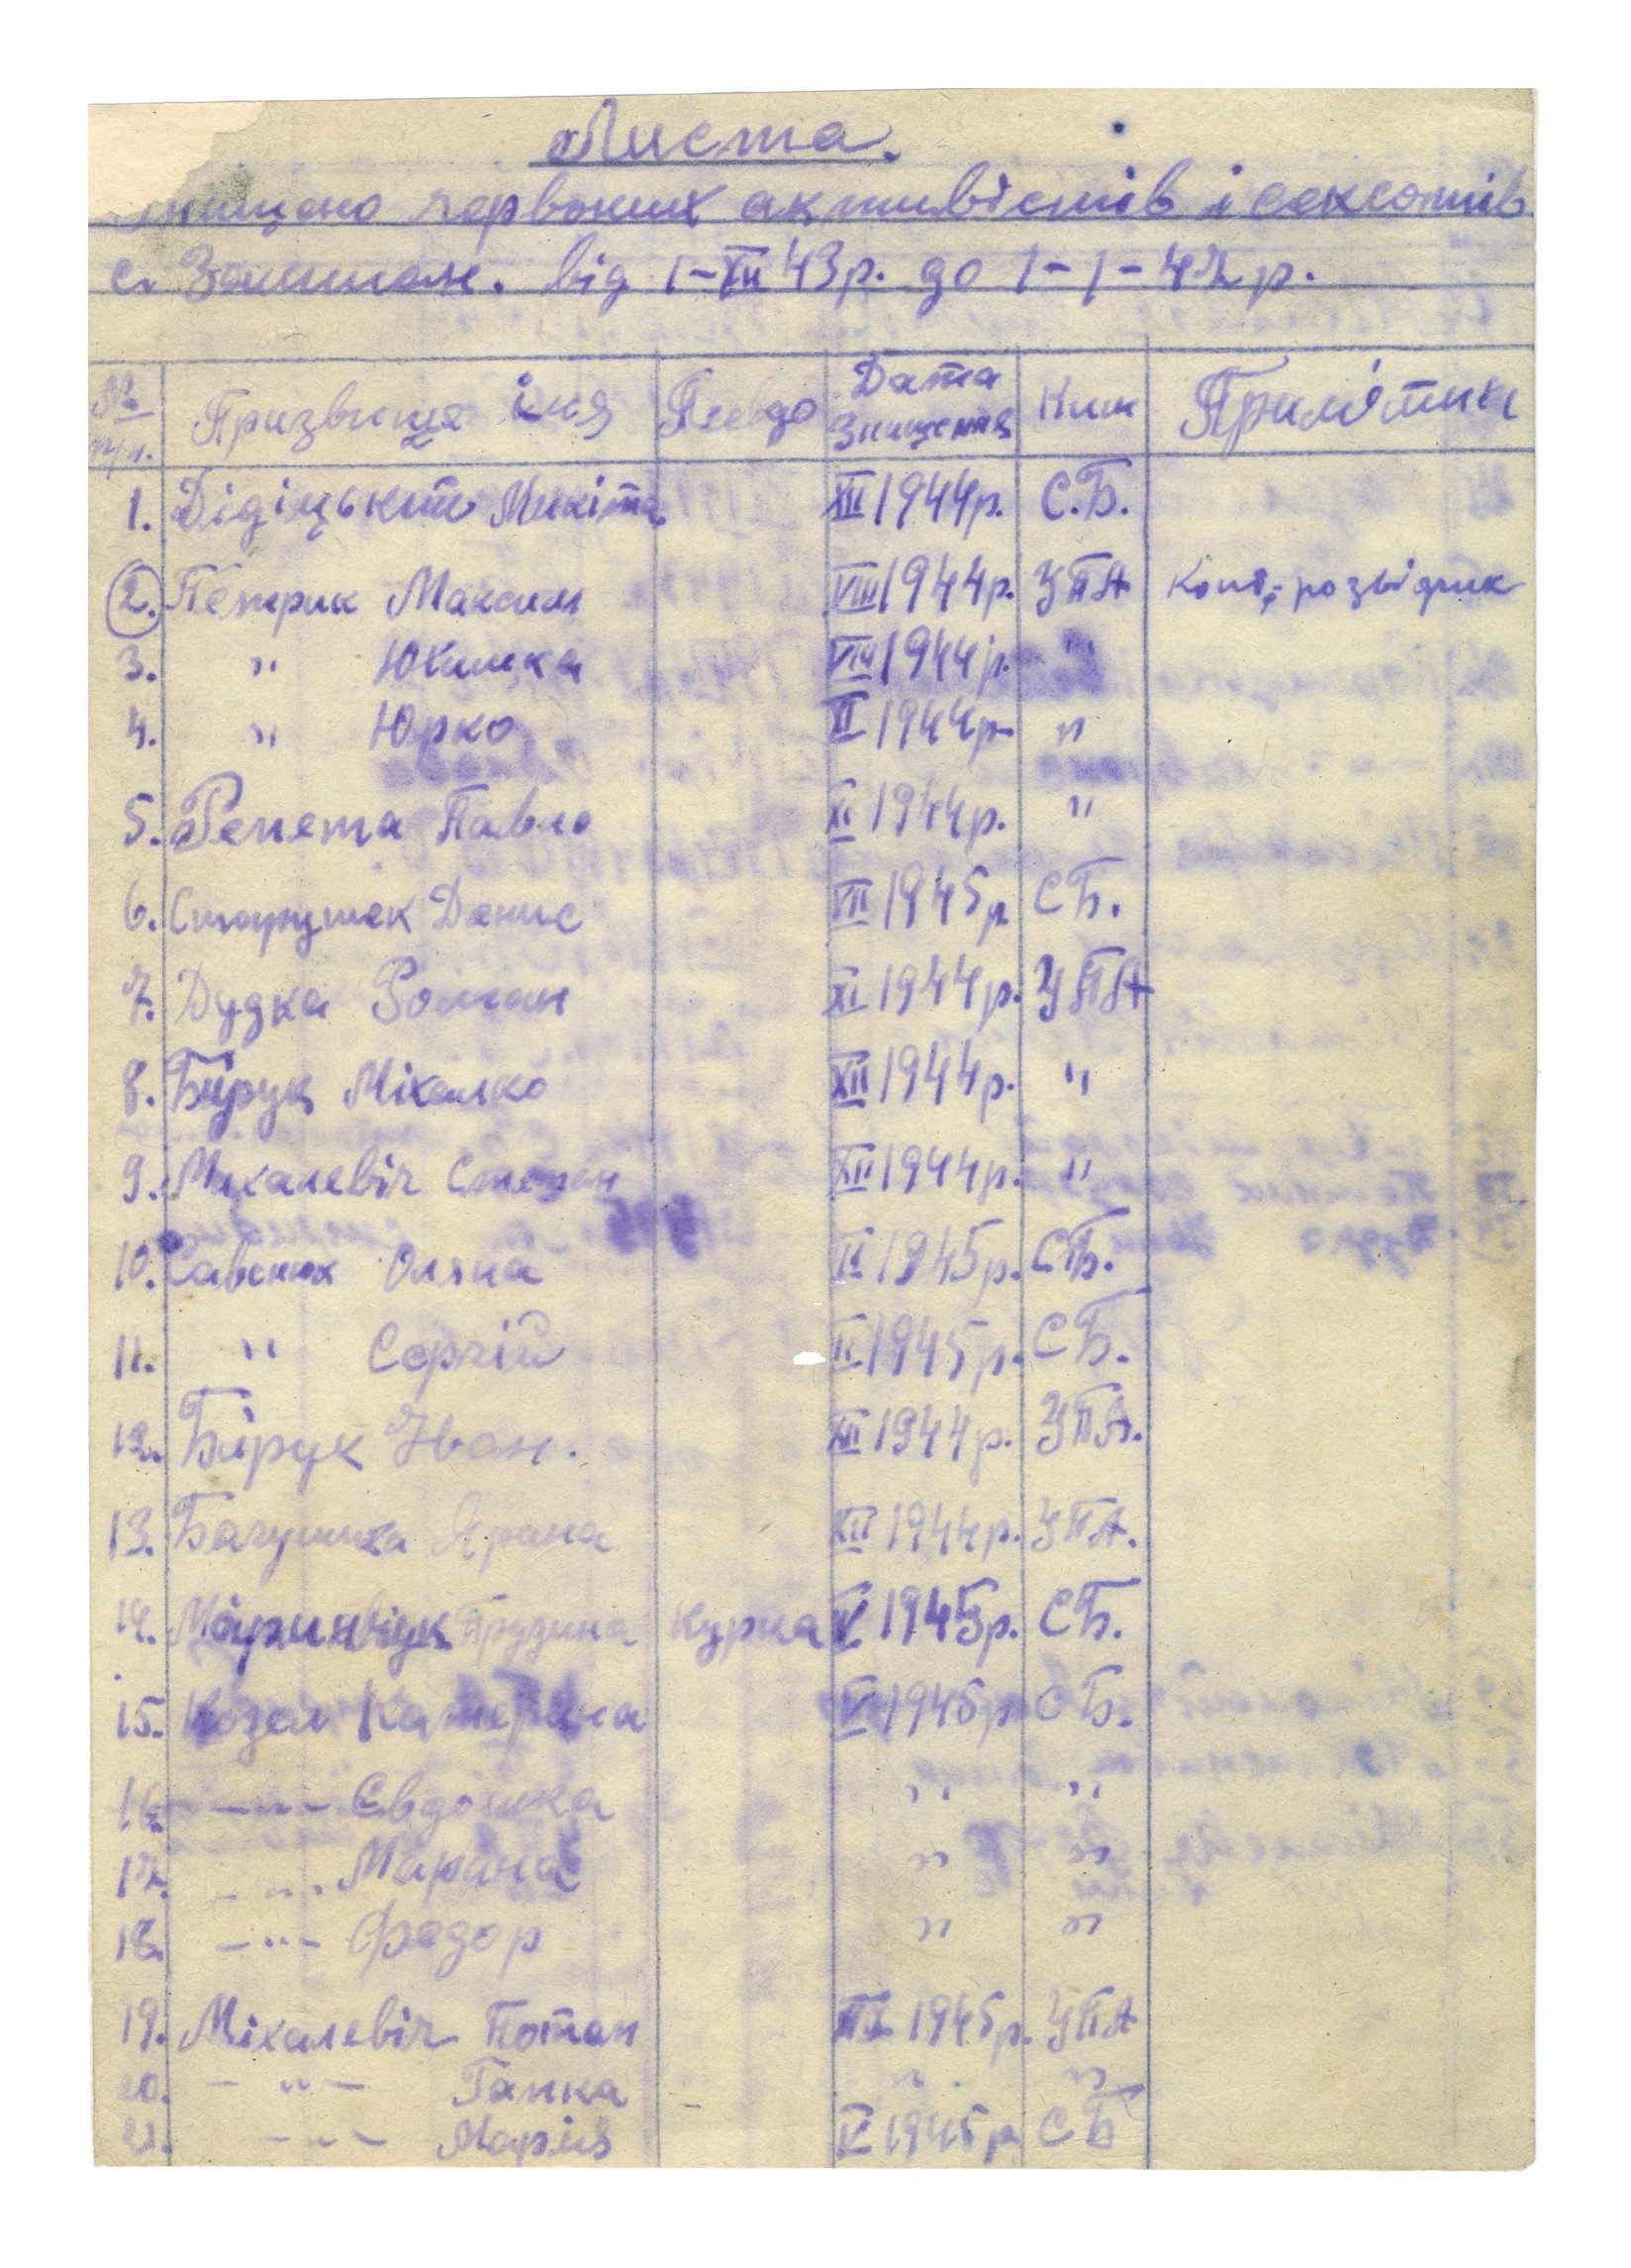 Листа.
нищено червоних активістів і сексотів
с. від 1-XII 43р. до 1-1-47р.
№ п/п. Призвище імя Псевдо Дата Знищення Ким Примітки
1. Дідіцький Микіта XII 1944р. С.Б.
2. Петрик Максим VIII 1944р. УПА Кont-розвідчик
3. " Юхимка VIII 1944р. "
4. " Юрко XI 1944р. "
5. Репета Павло XI 1944р. "
6. Денис VII 1945р СБ.
7. Дудка Роман XI 1944р. УПА
8. Бірук Міхалко XII 1944р. "
9. Михалевіч Степан XII 1944р. "
10. Савонюх Оляна II 1945р. СБ.
11. " Сергій II 1945р. СБ.
12. Бірук Іван. XII 1944р. УПА.
13. Ярина XII 1944р. УПА.
14. Курка V 1945р. СБ.
15. Козел Катерина V 1945р СБ.
16. -"- Євдошка " "
17. -"- Марина " "
18. -"- Федор " "
19. Міхалевіч Потап 1945р. УПА
20. -"- Гапка " "
21. -"- Марія V 1945р СБ